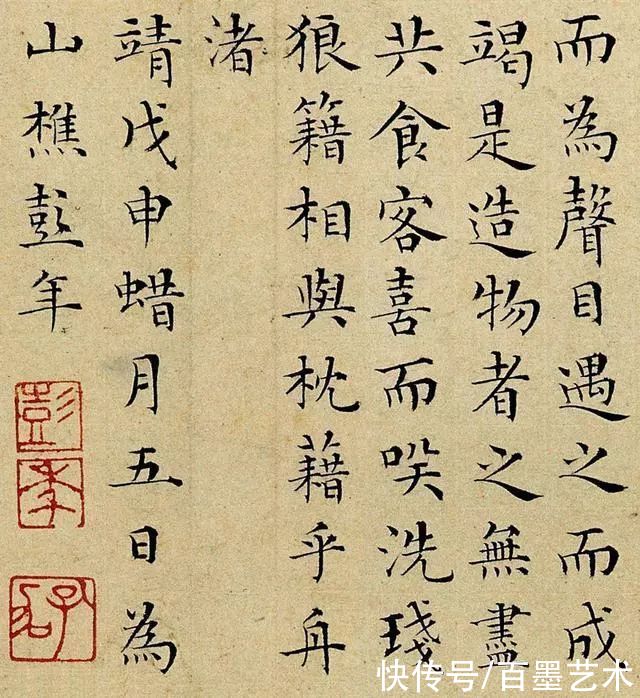 而為聲目遇之而成
竭是造物者之無盡
共食客喜而咲洗琖
狼籍相與枕藉乎舟
渚
靖戊申蜡月五日為
山樵彭年
彭年
快传号/百墨艺术